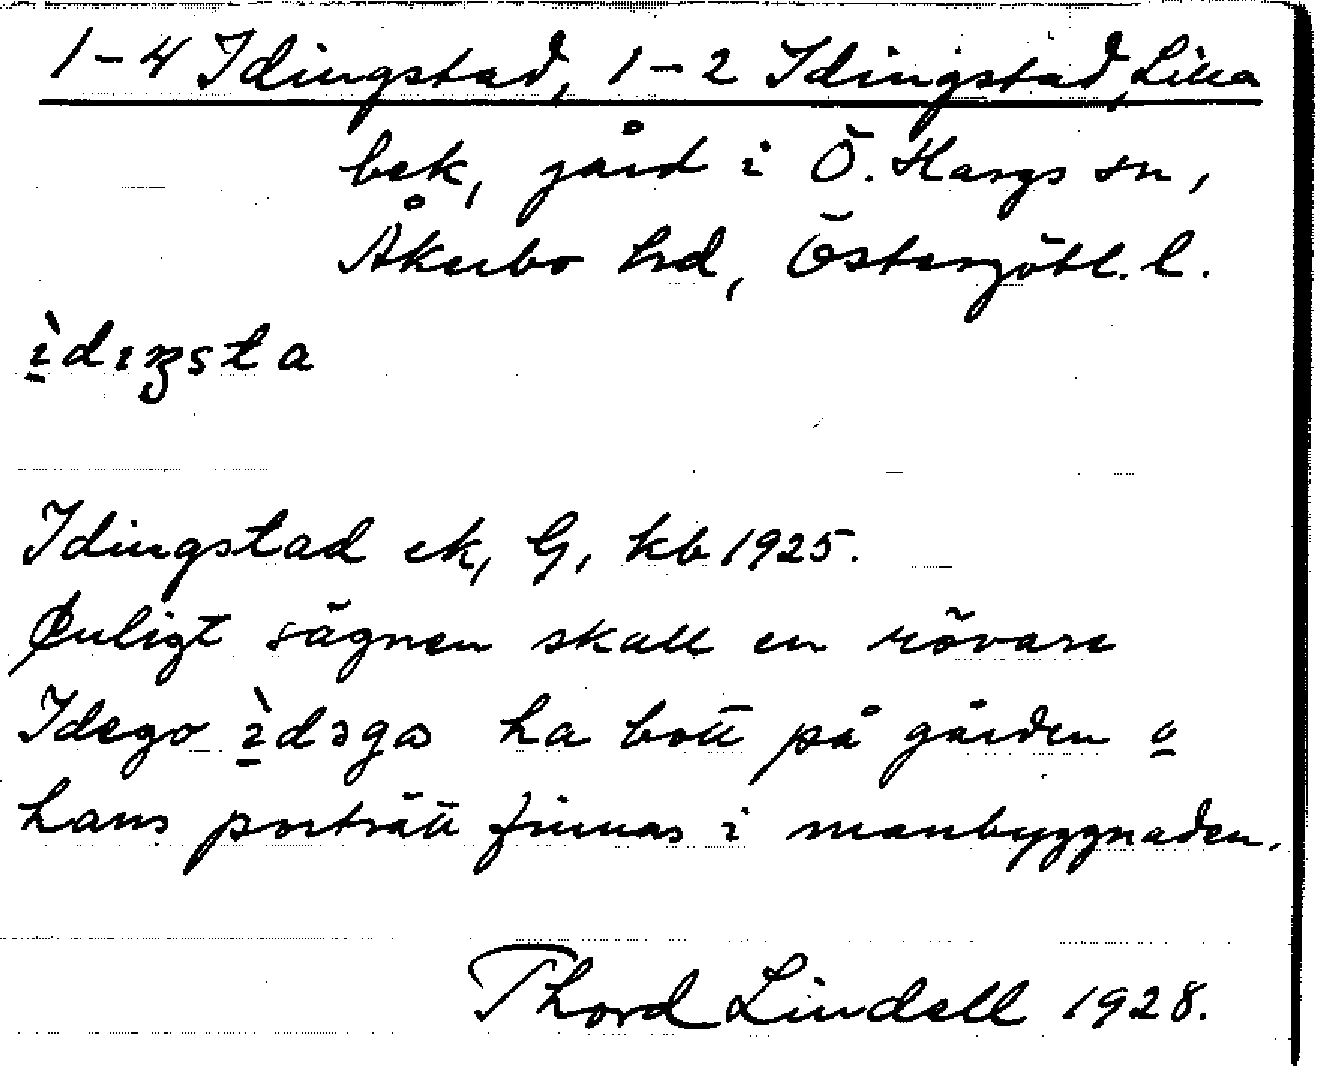 1-4 Idingstad, 1-2 Idingstad, Lilla
bek, gård i Ö. Hargs sn,
Åkerbo hd, Östergötl. l.
ìdıŋsta
Idingstad ek, G, kb 1925.
Enligt sägnen skall en rövare
Idego ìdəgω ha bott på gården o
hans porträtt finnas i manbyggnaden.
Thord Lindell 1928.